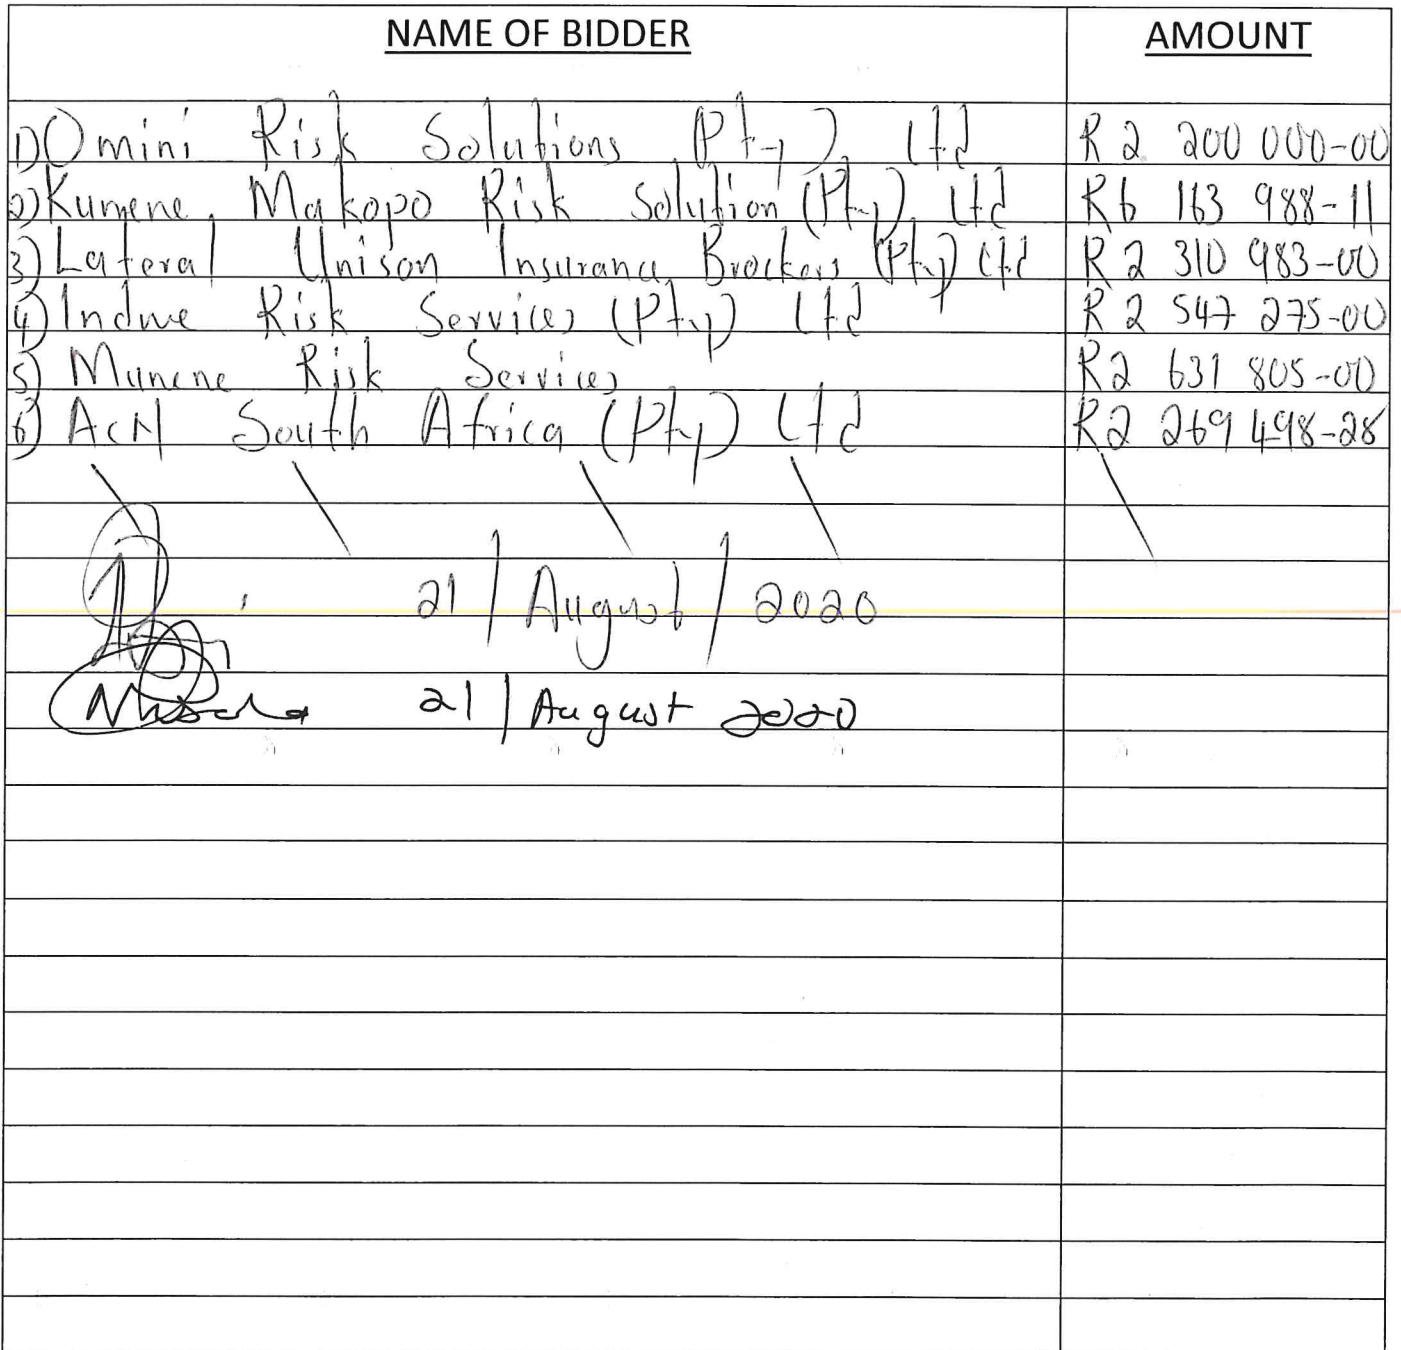 NAME OF BIDDER AMOUNT
1) Omini Risk Solutions (Pty) Ltd R 2 200 000-00
2) Kunene Makopo Risk Solution (Pty) Ltd R6 163 988-11
3) Lateral Unison Insurance Brockers (Pty) Ltd R 2 310 983-00
4) Indwe Risk Services (Pty) Ltd R 2 547 275-00
5) Munene Risk Services R2 631 805-00
6) South Africa (Pty) Ltd R2 269 498-28
21 / August / 2020
21 / August 2020